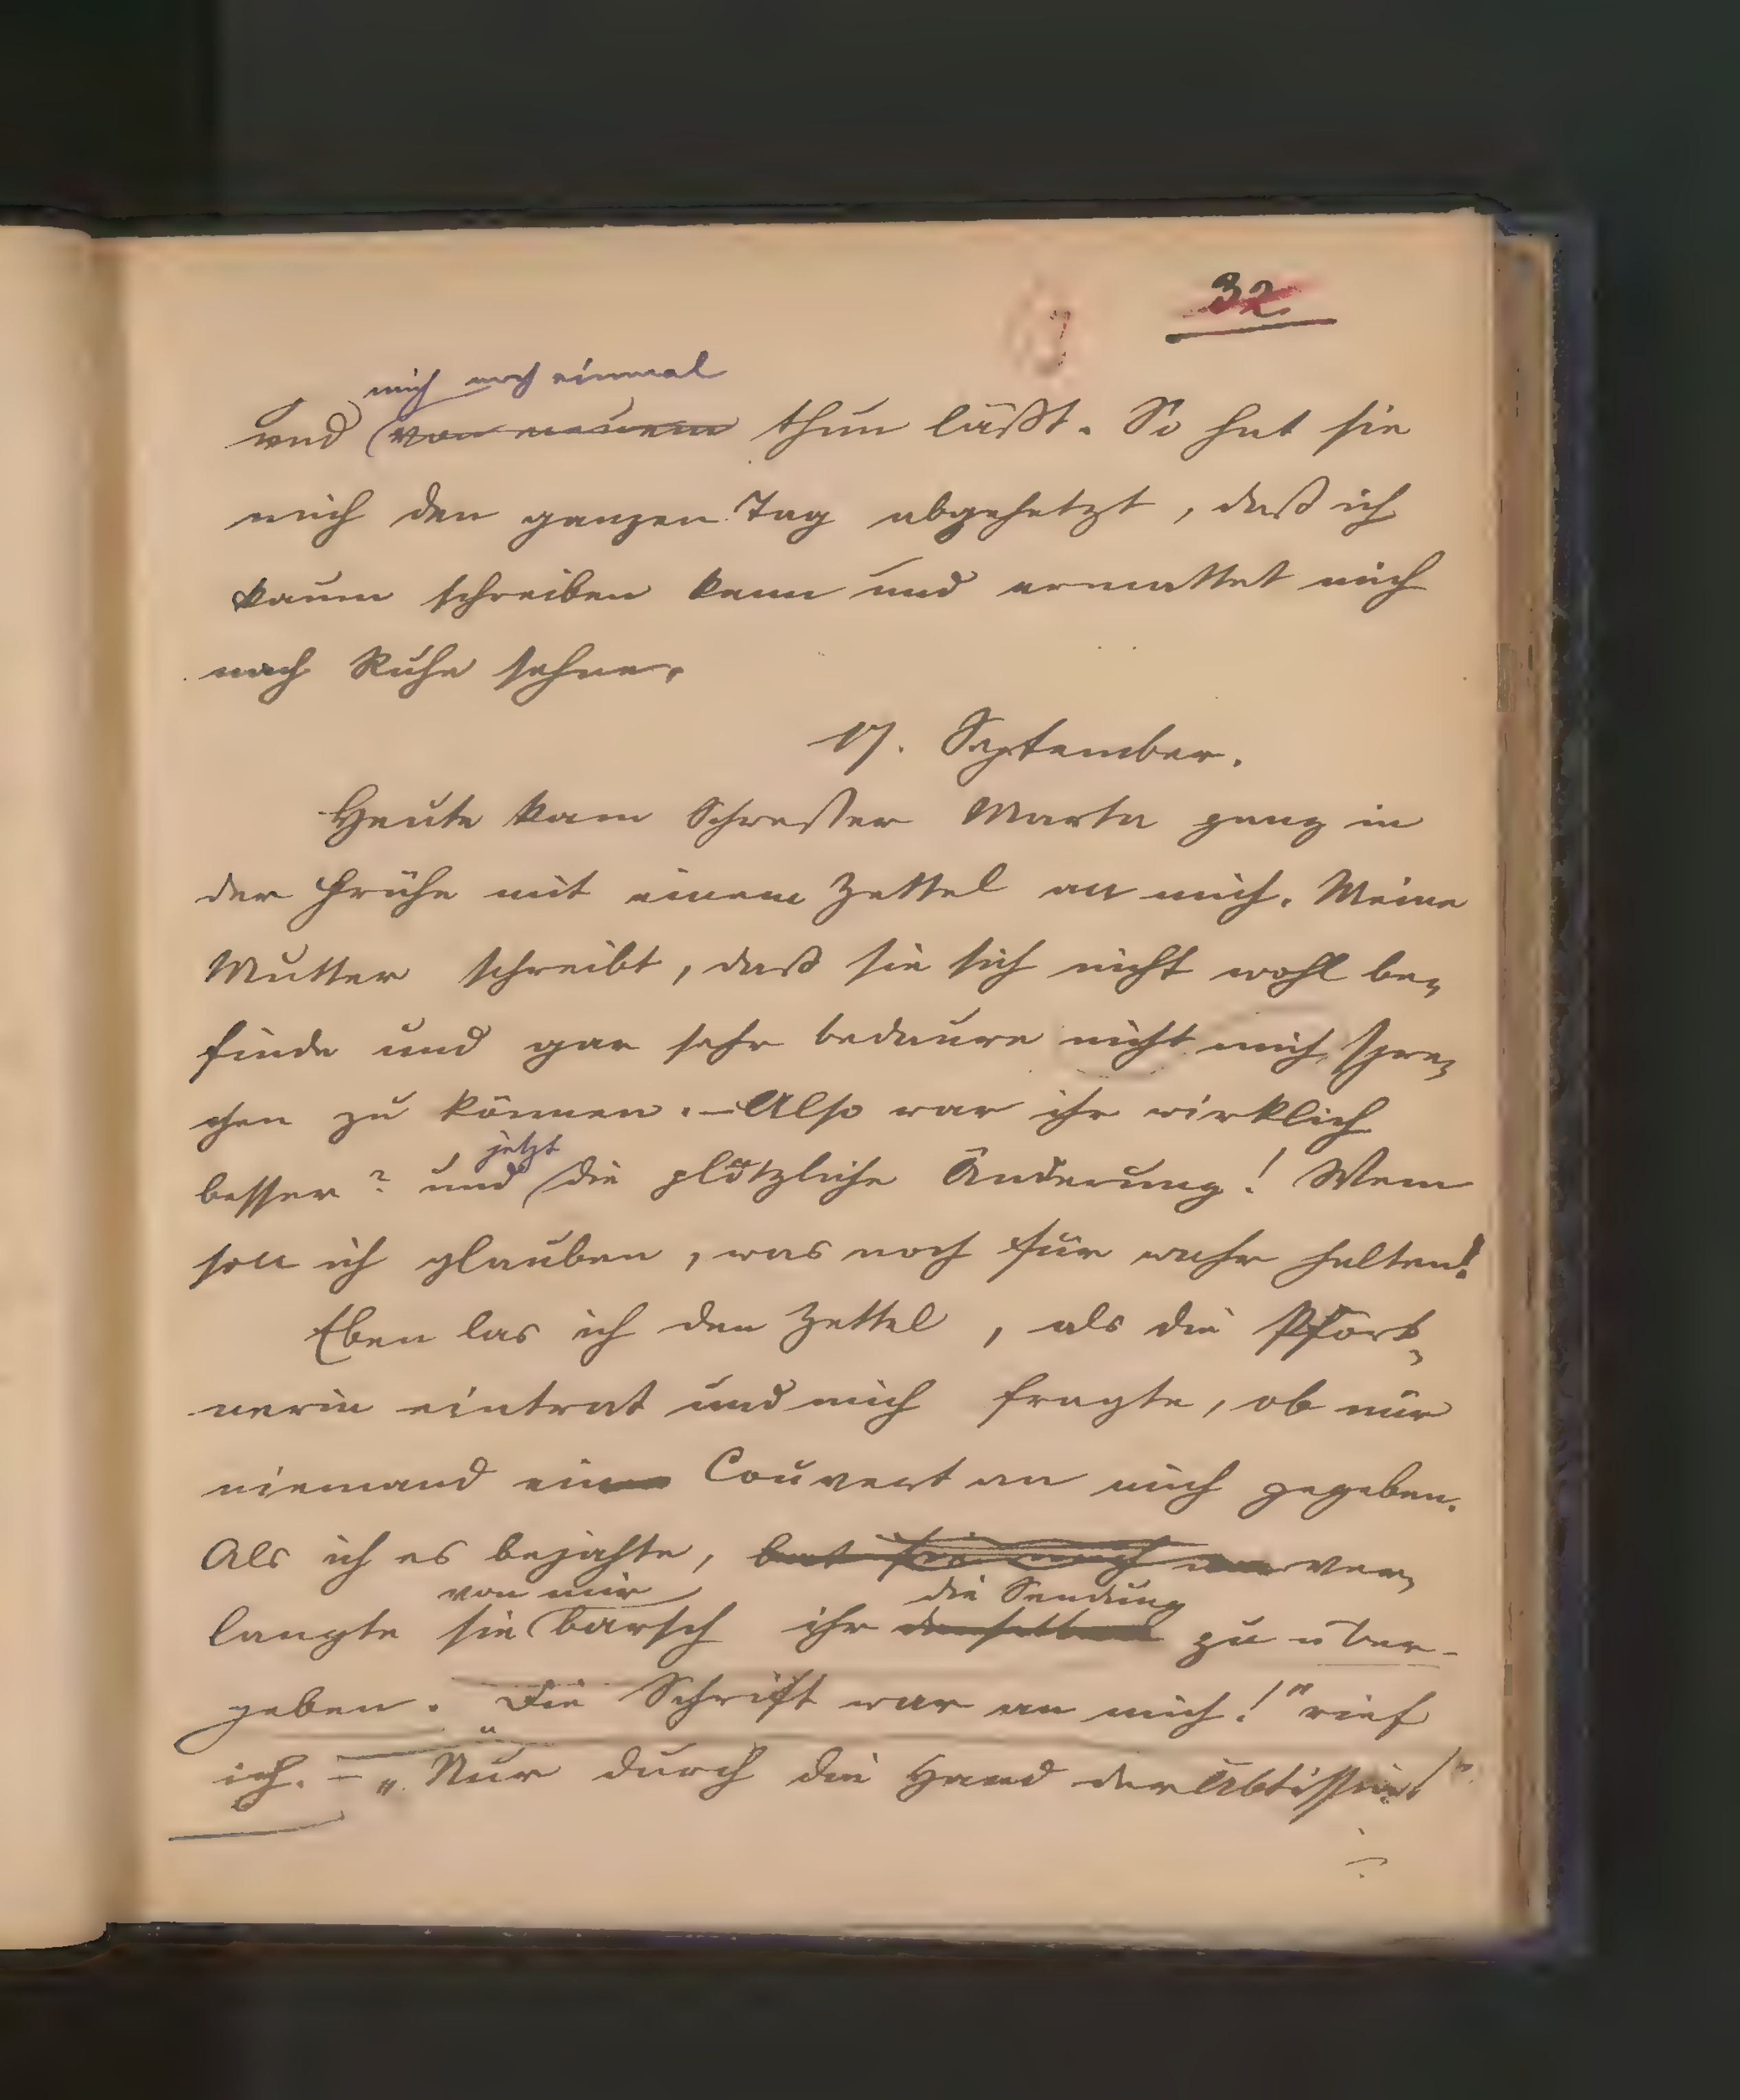 32.
mich noch einmal
und von neuem thun läßt. So hat sie
mich den ganzen Tag abgehetzt, daß ich
kaum schreiben kann und ermattet mich
nach Ruhe sehne.
17. September.
Heute kam Schwester Marta ganz in
der Frühe mit einem Zettel an mich. Meine
Mutter schreibt, daß sie sich nicht wohl be-
finde und gar sehr bedaure nicht mich spre-
chen zu können. – Also war ihr wirklich
jetzt
besser? und die plötzliche Änderung! Wem
soll ich glauben, was noch für wahr halten!
Eben las ich den Zettel, als die Pfört-
nerin eintrat und mich fragte, ob mir
niemand ein Couvert an mich gegeben.
Als ich es bejahte, bat sie mich ver-
von mir die Sendung
langte sie barsch ihr zu über-
geben. „Die Schrift war an mich!" rief
ich. – „Nur durch die Hand der Äbtissin!"